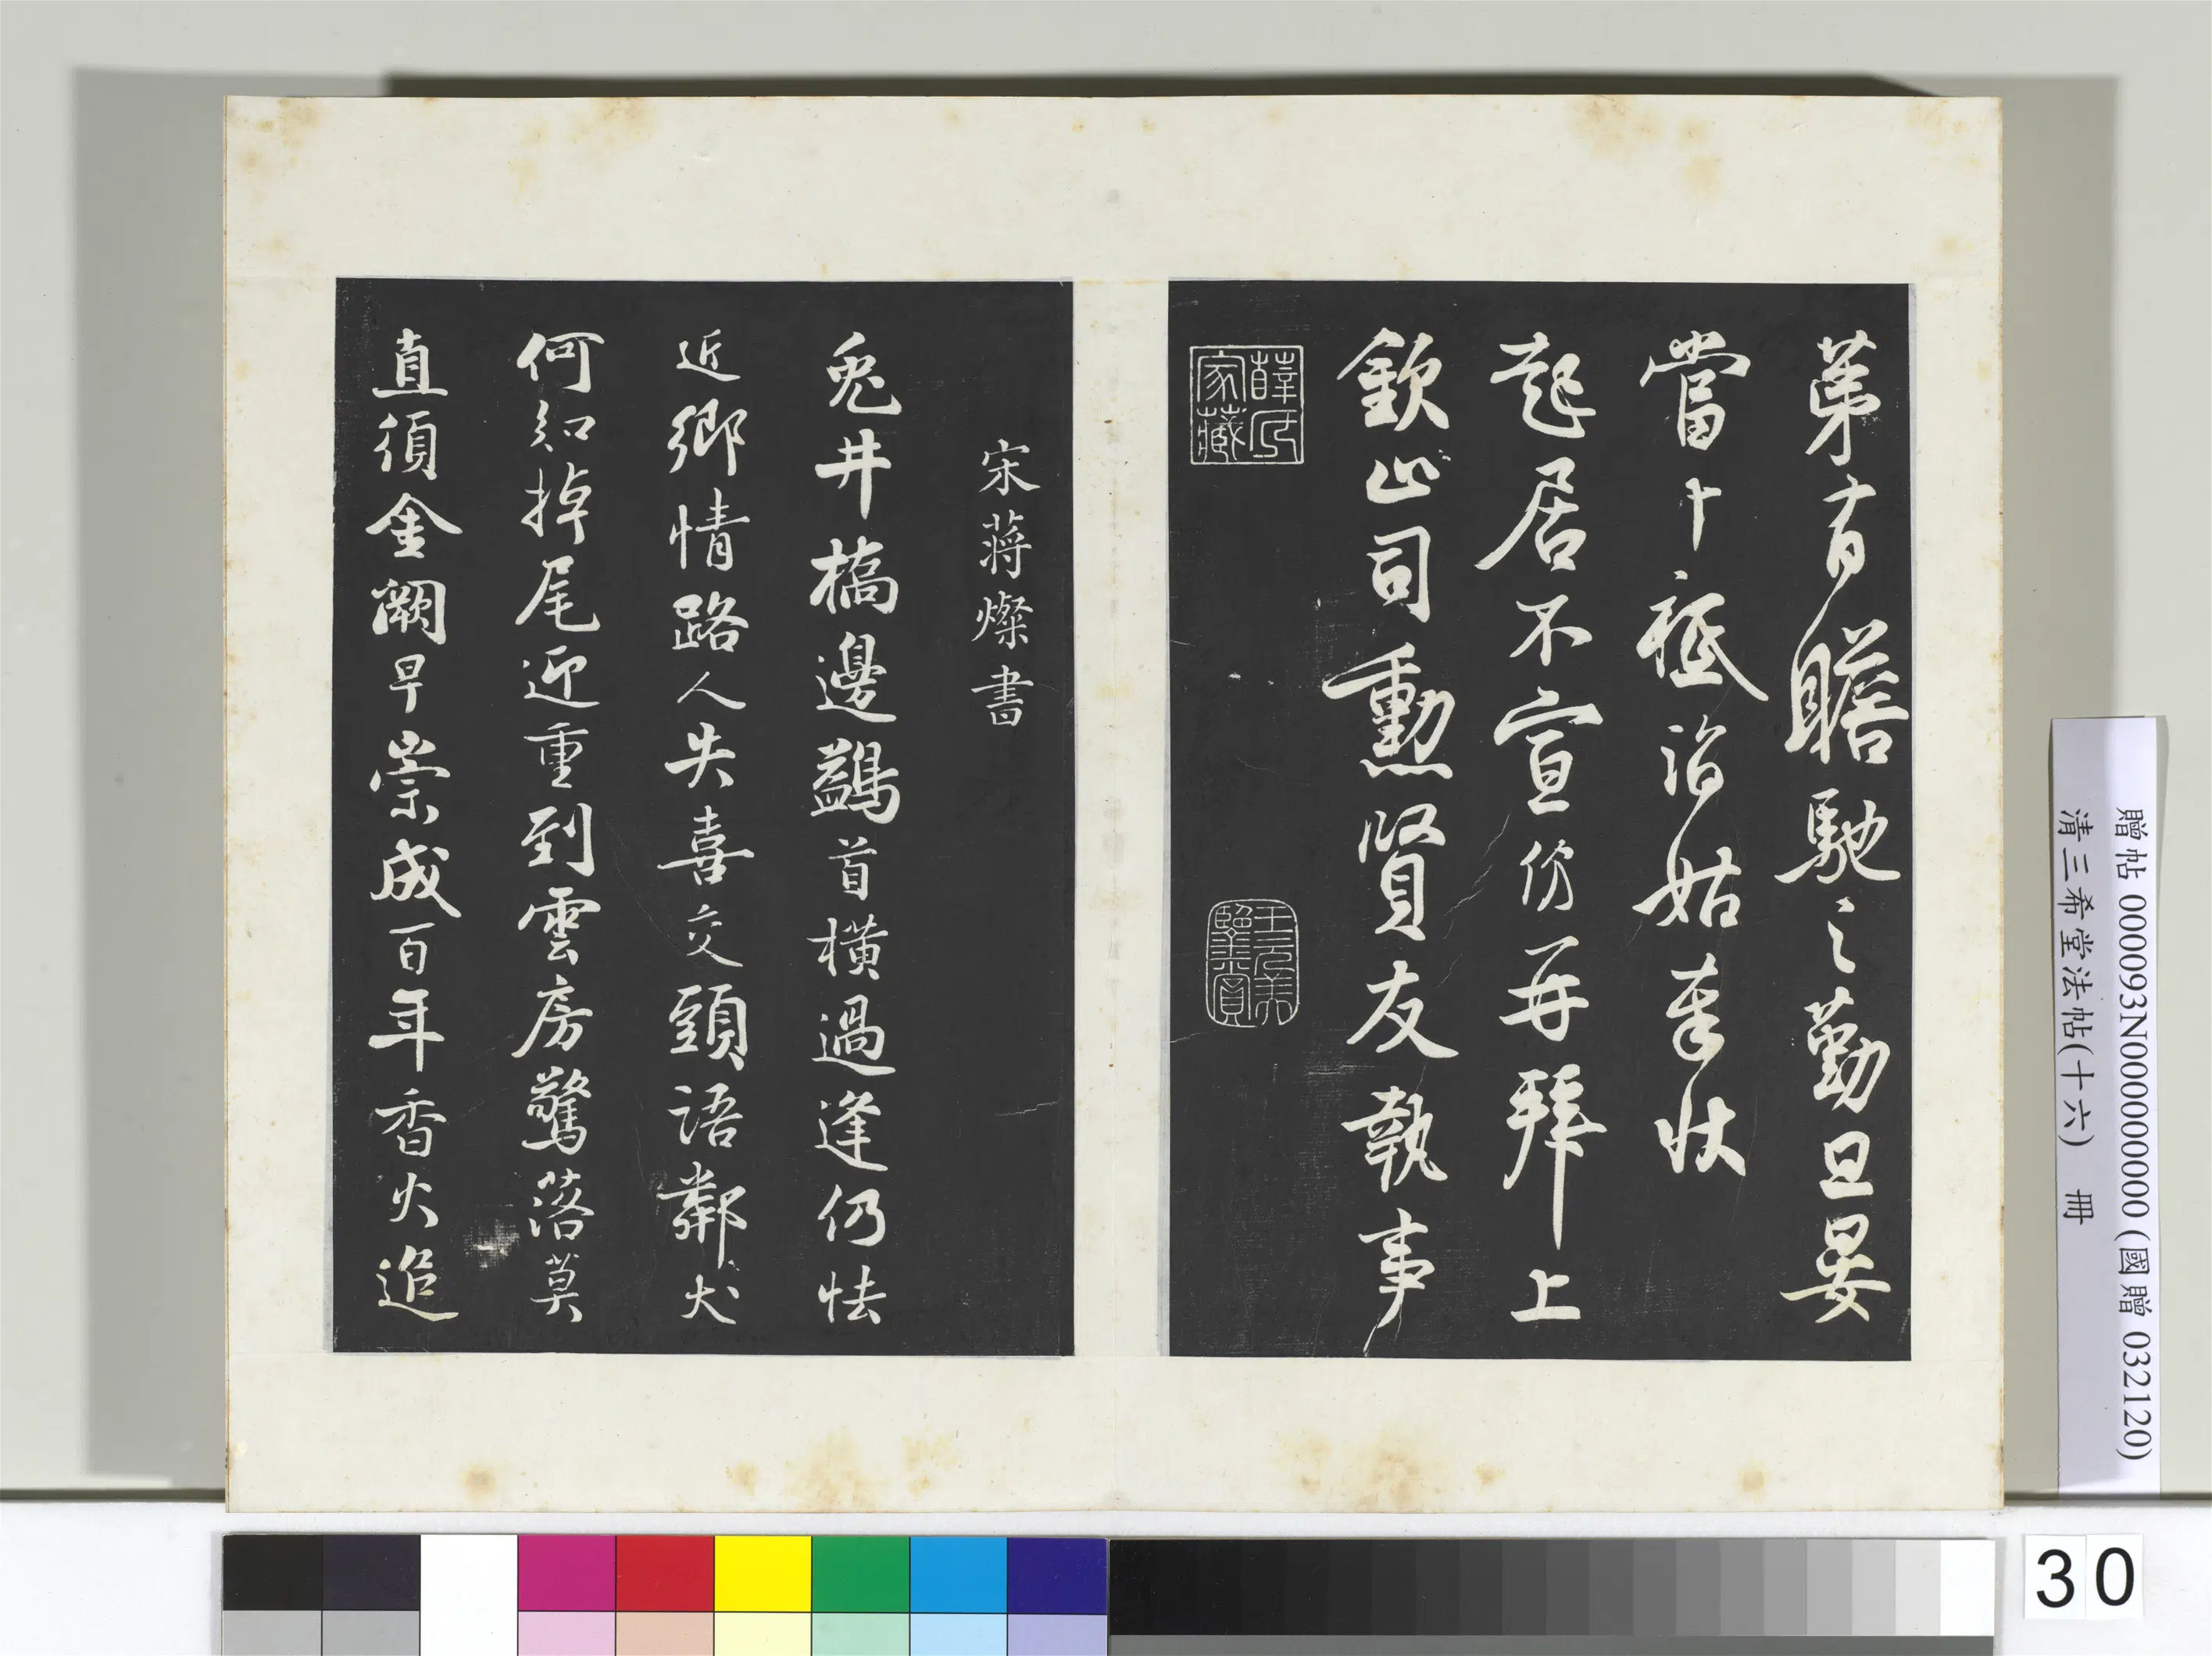 第有瞻馳之勤旦晏
當十祗詣姑奉狀
起居不宣份再拜上
欽止司勳賢友執事
薛氏家藏
王元美鑒賞
宋蔣燦書
兎井橋邊鷁首橫過逢仍怯
近鄉情路人失喜交頭語鄰犬
何知掉尾迎重到雲房驚落莫
直須金闕早崇成百年香火追
贈帖 000093N000000000 (國贈 032120)
清三希堂法帖(十六) 冊
30